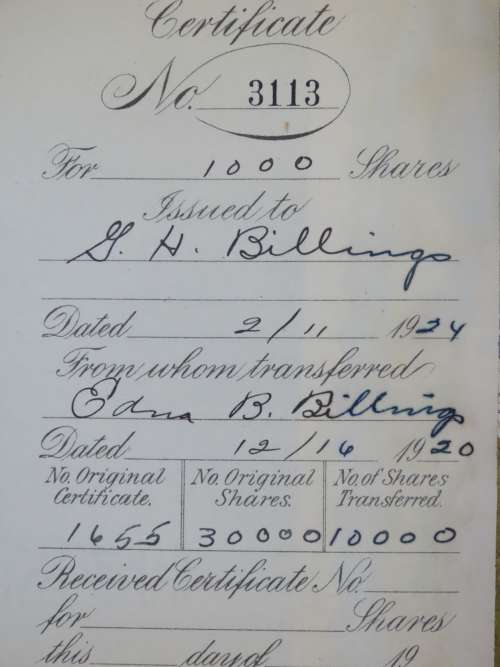 Certificate
No. 3113
For 1000 Shares
Issued to
G. H. Billings
Dated 2/11 1924
From whom transferred
Edna B. Billings
Dated 12/16 1920
No. Original Certificate. No. Original Shares. No. of Shares Transferred.
1655 30000 10000
Received Certificate No.
for Shares
this day of 19